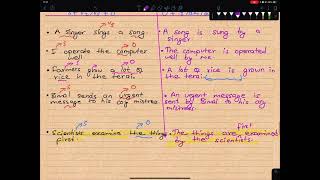 vs
• A singer sings a song.
• A song is sung by a
singer
S O
• I operate the computer
well
• The computer is operated
well by me.
S O
• Farmers grow a lot of
rice in the terai.
• A lot of rice is grown in
the terai.
S O
• Bimal sends an urgent
message to his
• An urgent message is
sent by Bimal to his
S O
• Scientists examine the things
first.
first
• The things are examined
by the scientists.